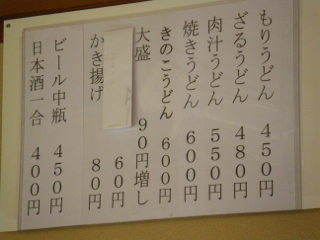 もりうどん 450円
ざるうどん 480円
肉汁うどん 550円
焼きうどん 600円
きのこうどん 600円
大盛 90円増し
60円
かき揚げ 80円
ビール中瓶 450円
日本酒一合 400円